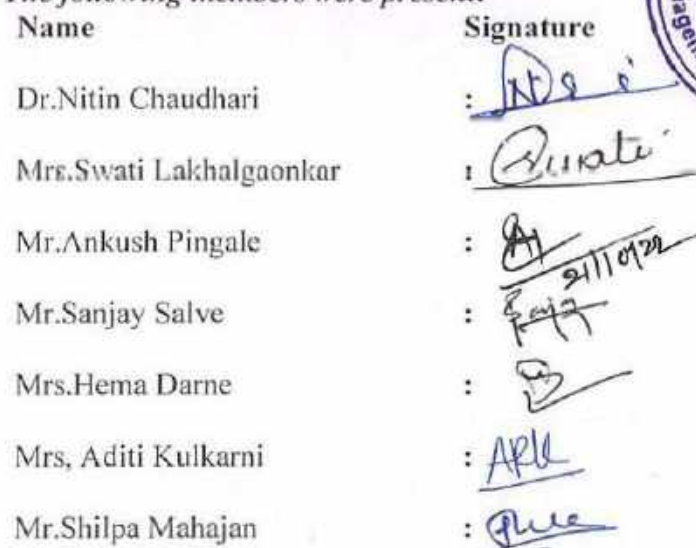 The following members were present:
Name Signature
Dr.Nitin Chaudhari :
Mrs.Swati Lakhalgaonkar : Swati
Mr.Ankush Pingale :
Mr.Sanjay Salve :
Mrs.Hema Darne :
Mrs, Aditi Kulkarni : ARK
Mr.Shilpa Mahajan :